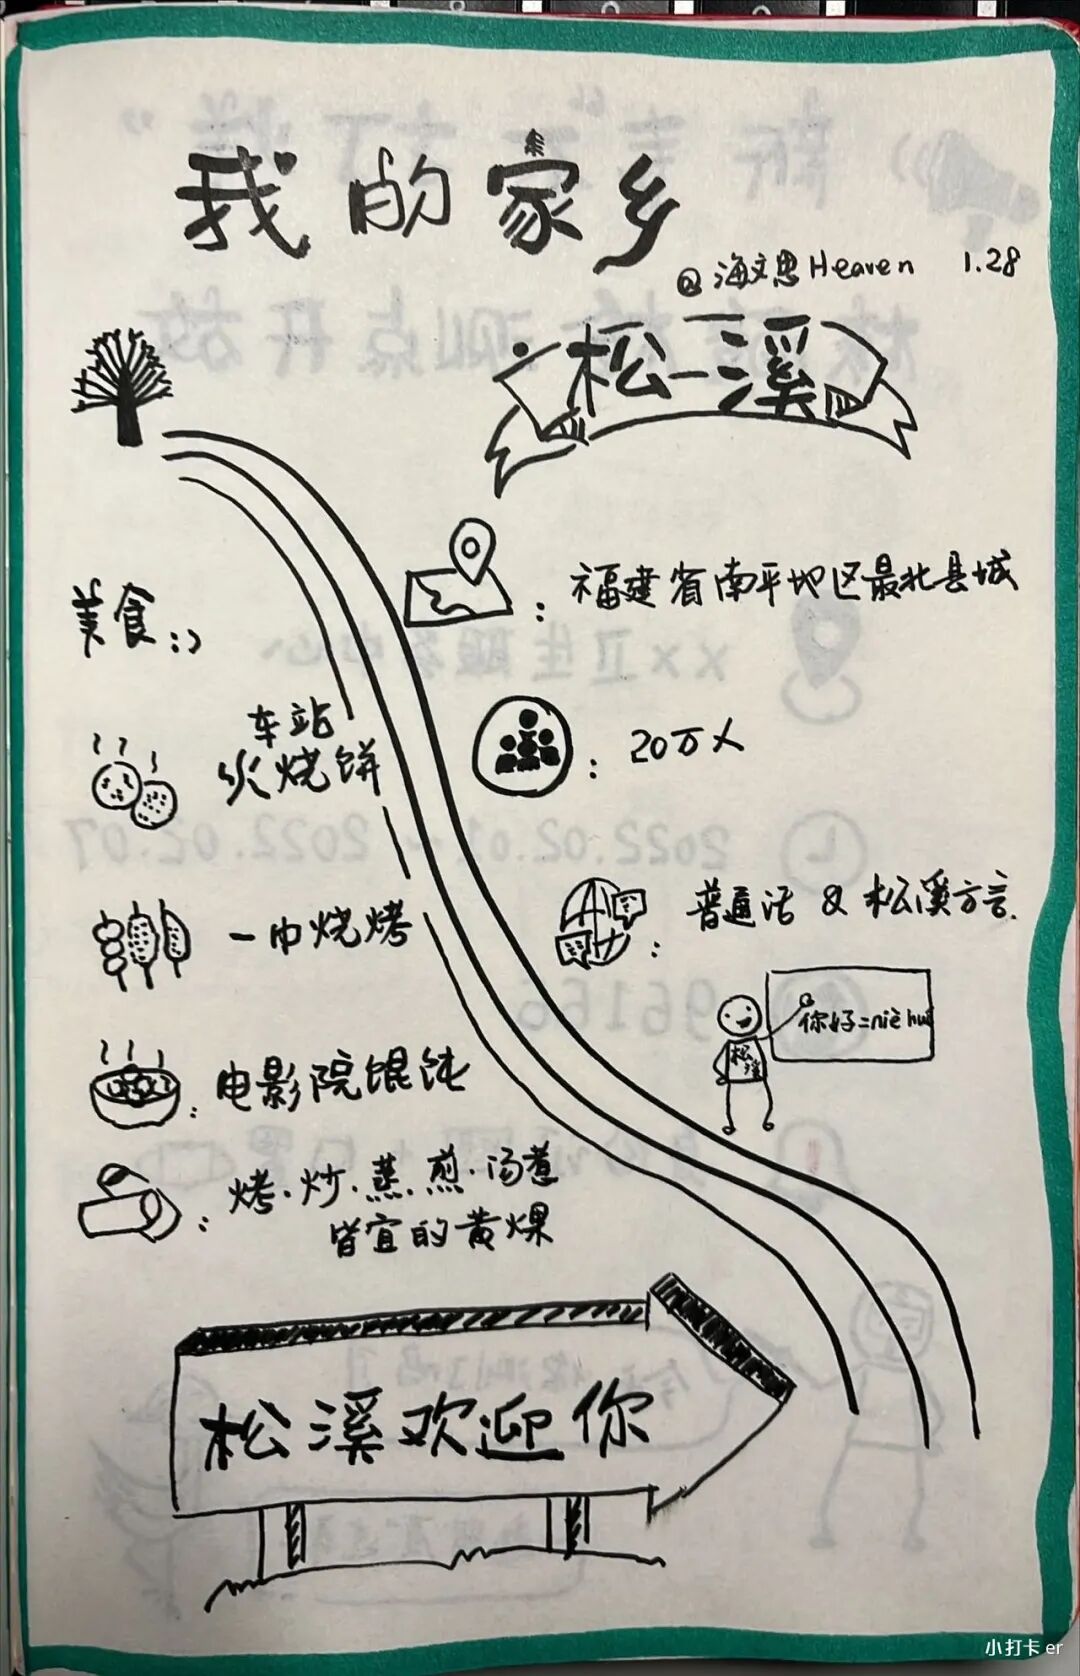 我的家乡
@海文思Heaven 1.28
松溪
:福建省南平地区最北县城
:20万人
:普通话 & 松溪方言.
你好=niè hui
松溪
美食:
车站
火烧饼
一中烧烤
:电影院馄饨
:烤·炒·蒸·煎·汤煮
皆宜的黄粿
松溪欢迎你
小打卡 er